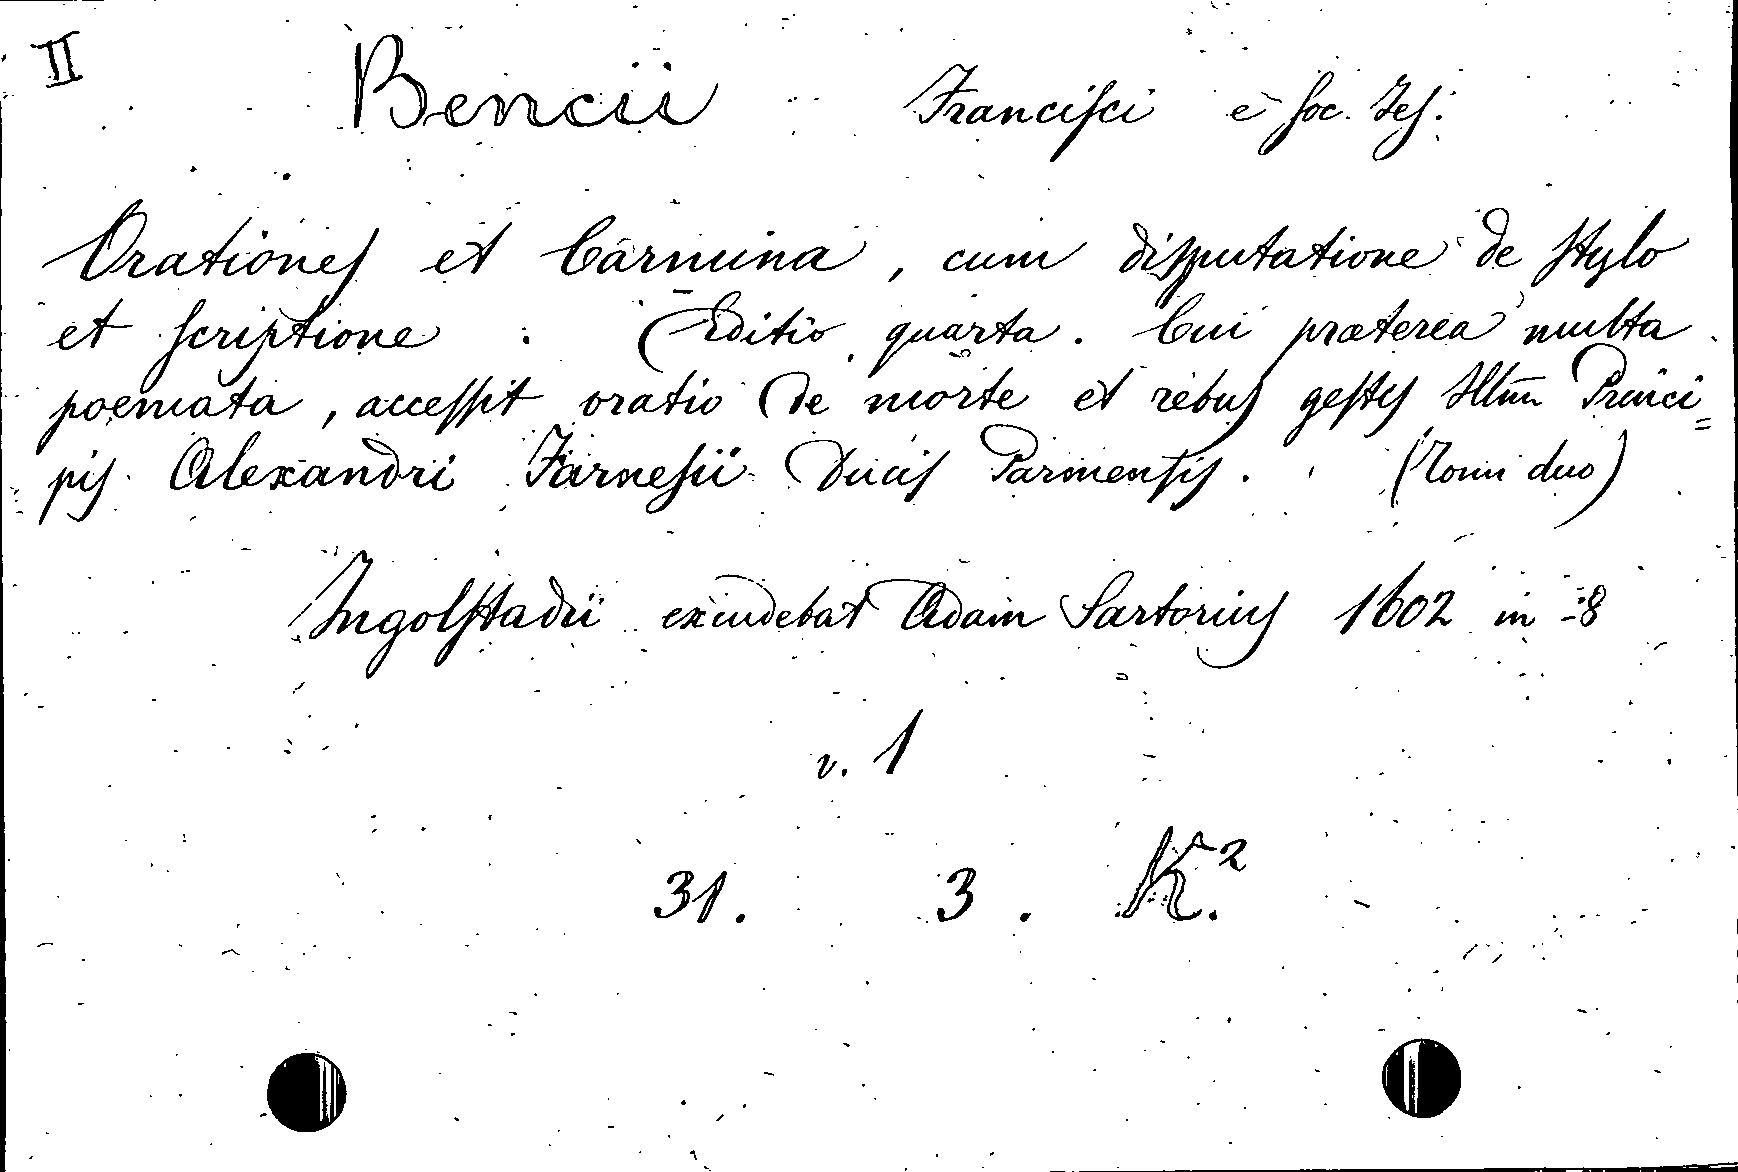 II Bencii Franciſci e Soc. Jeſ.
Orationeſ et Carmina, cum diſputatione de ſtylo
et ſcriptione. (Editio quarta. Cui præterea multa
poemata, acceſſit oratio de morte et rebuſ geſtiſ Illm̄ Princi=
piſ Alexandri Farneſii Duciſ Parmenſiſ. (Tomi duo)
Ingolſtadii excudebat Adam Sartoriuſ 1602 in -8
v. 1
31. 3. K².